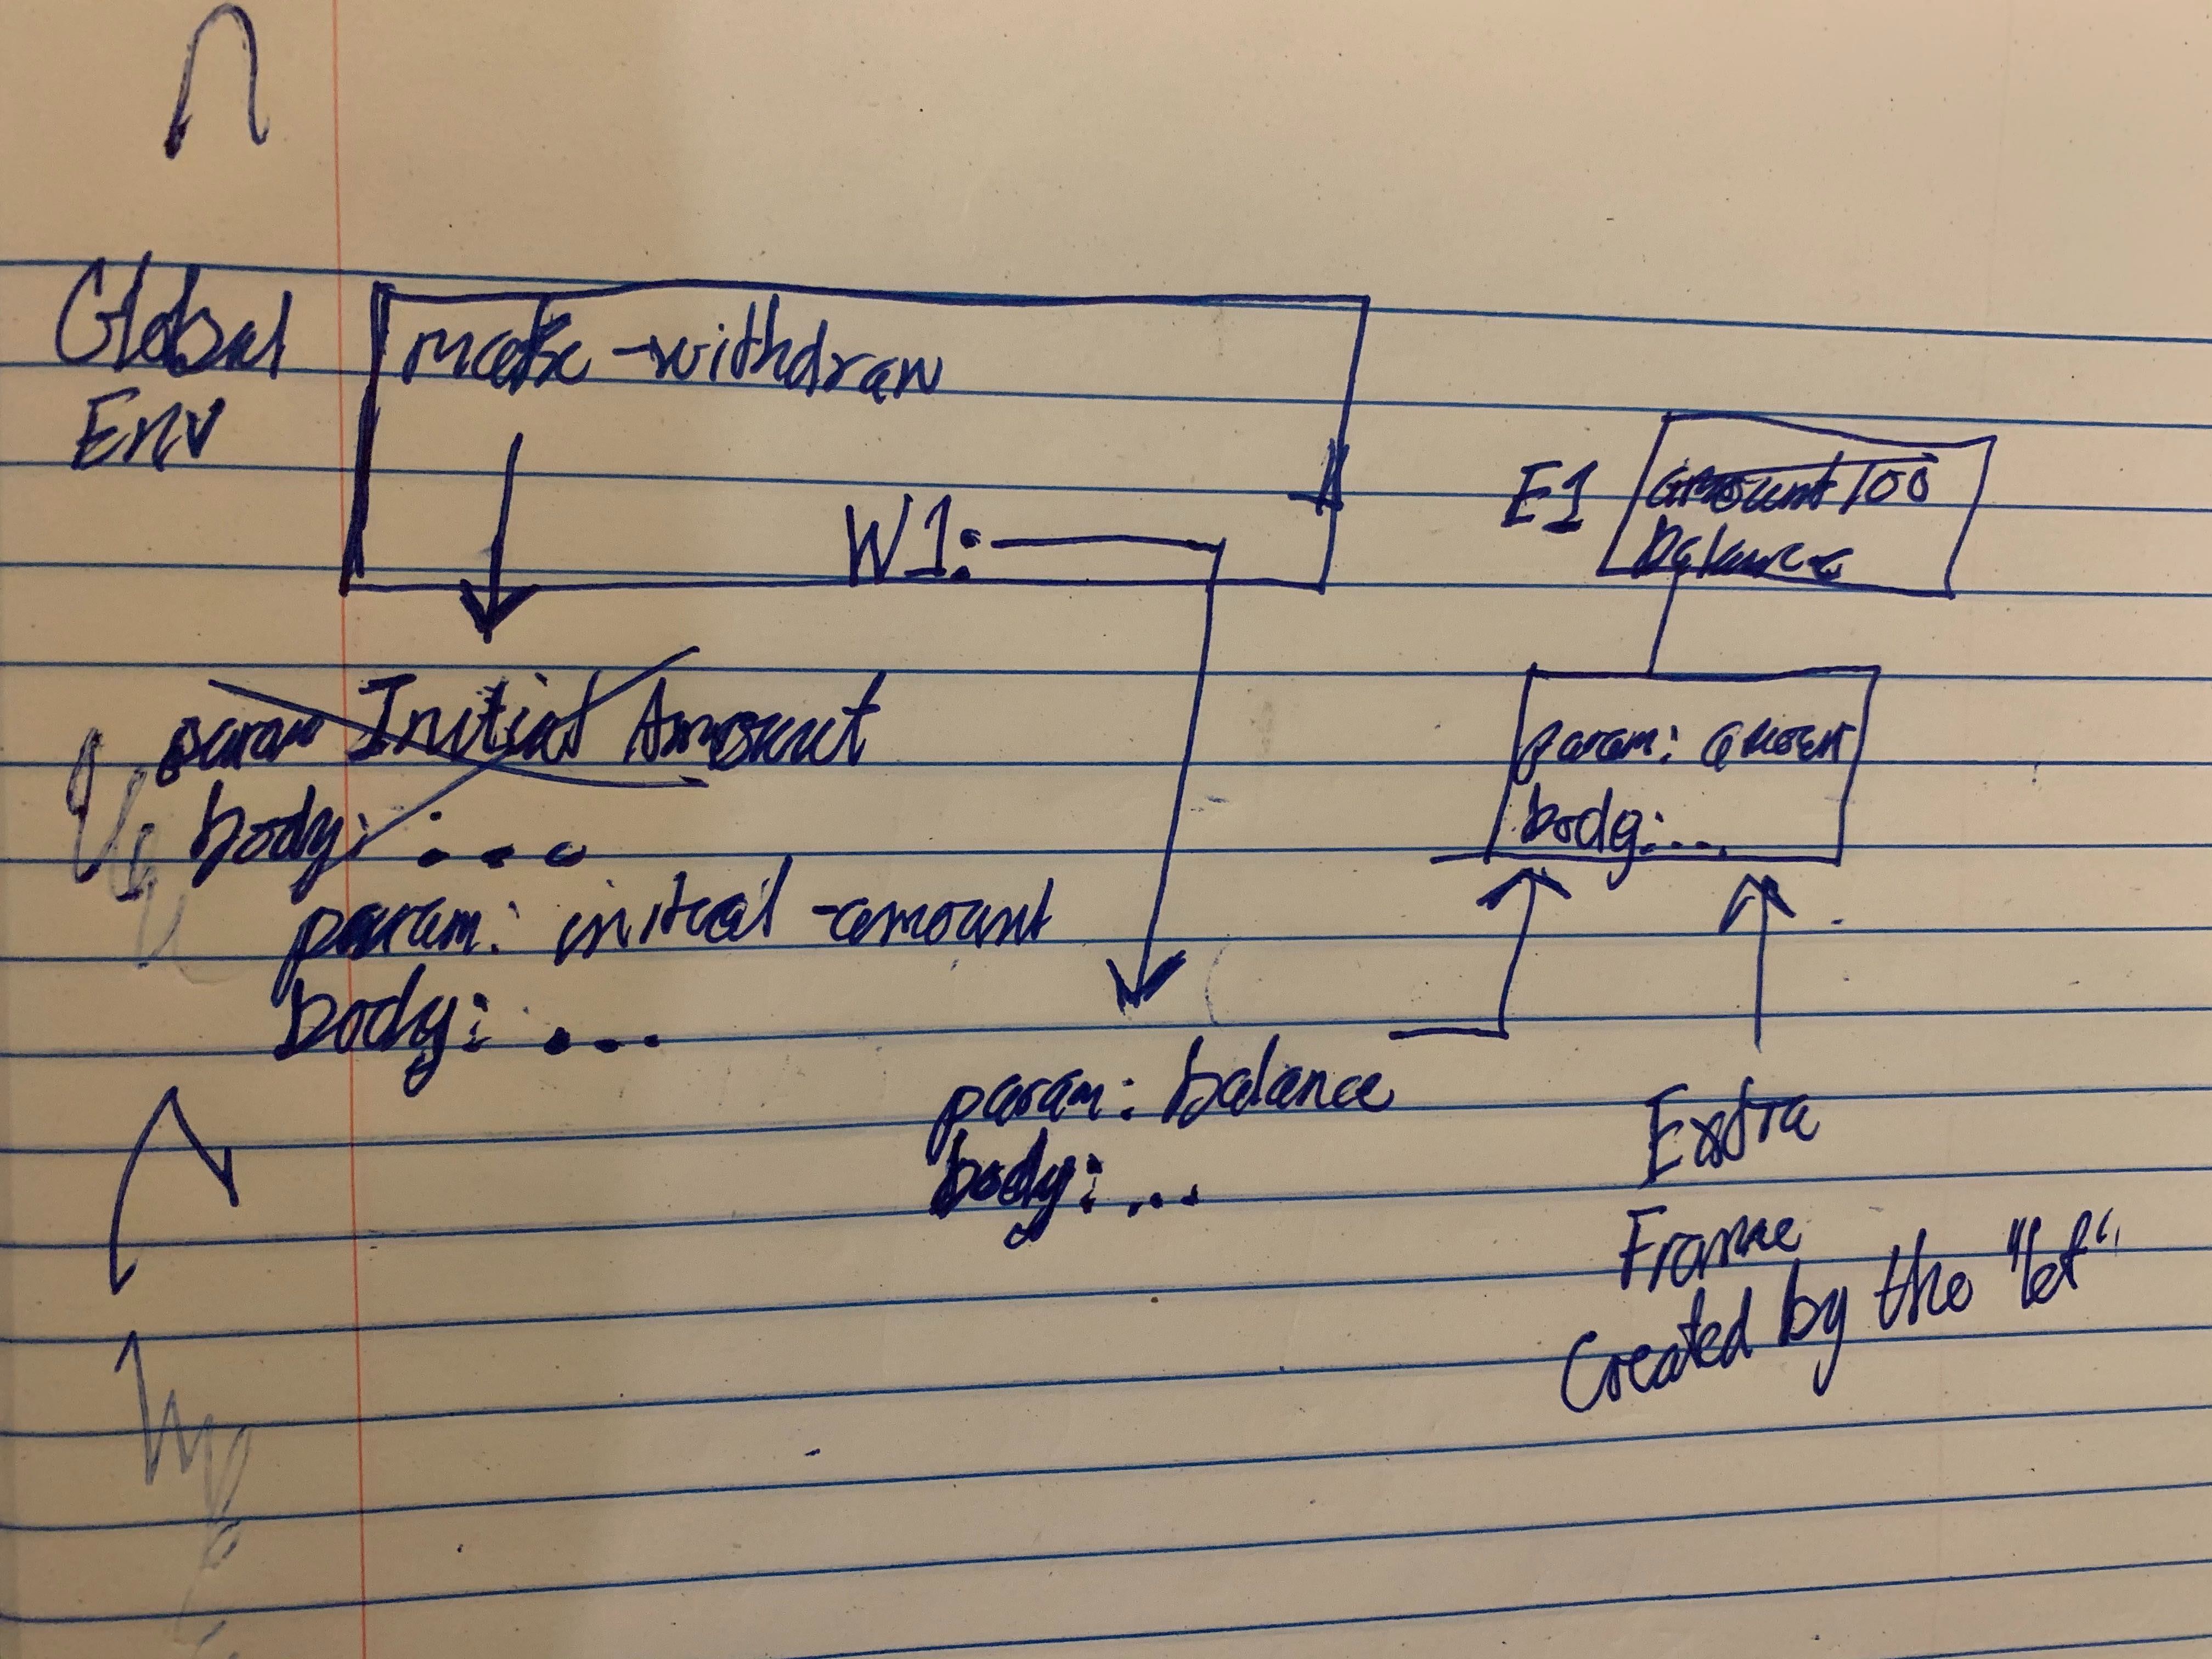 Global
Env
make-withdraw
W1:
E1
amount 100
balance
param Initial Amount
body: ...
param: amoun
body:...
param: initial-amount
body: ...
param: balance
body: ...
Extra
Frame
Created by the "let"